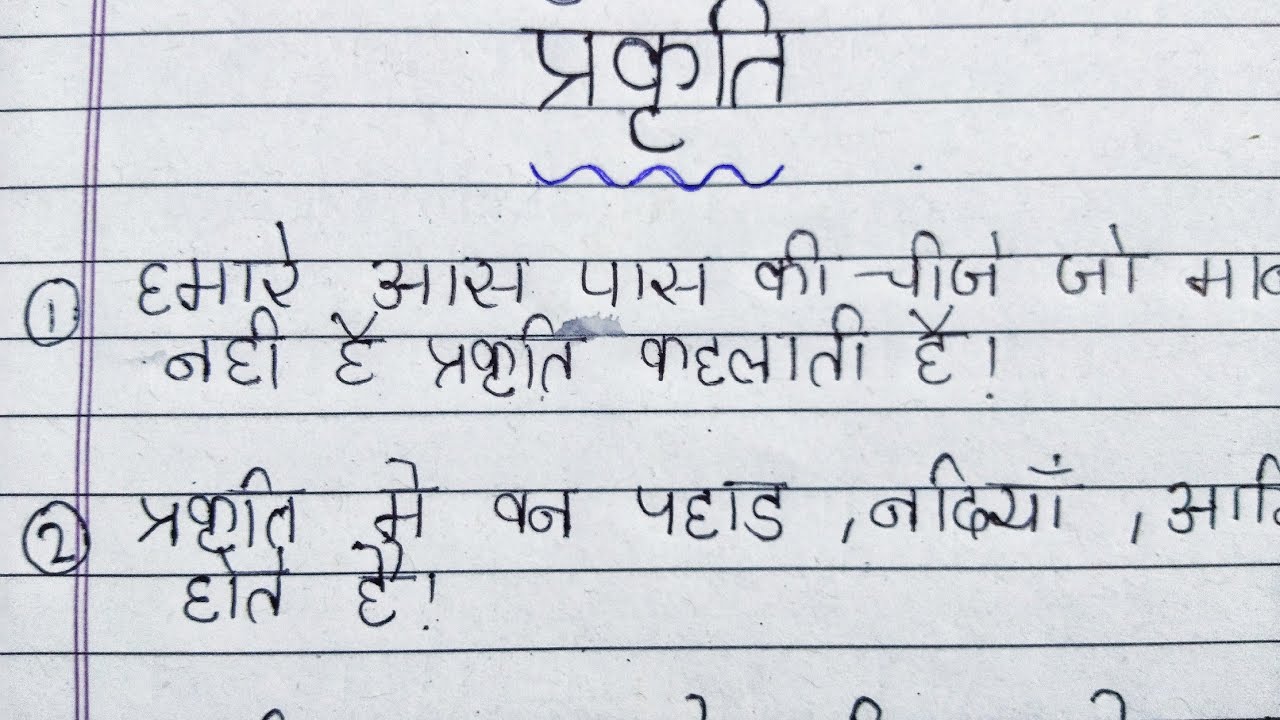 प्रकृति
① हमारे आस पास की चीजे जो
नही है प्रकृति कहलाती है।
② प्रकृति मे वन पहाड ,नदियाँ ,
होते है।